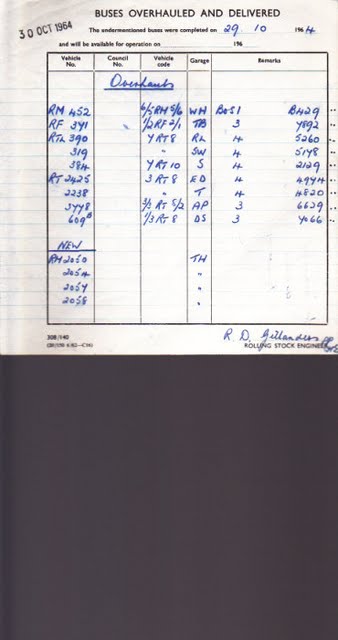 BUSES OVERHAULED AND DELIVERED
30 OCT 1964
The undermentioned buses were completed on 29. 10 1964
and will be available for operation on 196
Vehicle No. Council No. Vehicle code Garage Remarks
Overhauls
RM 452 6/5RM 5/6 WH BoS1 B429
RF 391 1/2RF2/1 TB 3 7892
RTL 390 7 RT8 RL 4 5260
319 " SW 4 5178
384 7 RT10 S 4 2129
RT 2425 3 RT8 ED 4 4974
2238 " T 4 4820
3778 3/3 RT 5/2 AP 3 6629
609 1/3 RT 8 DS 3 4066
NEW
RM 2050 TH
2054 "
2057 "
2058 "
308/140
R. D. Gillanders
ROLLING STOCK ENGINEER